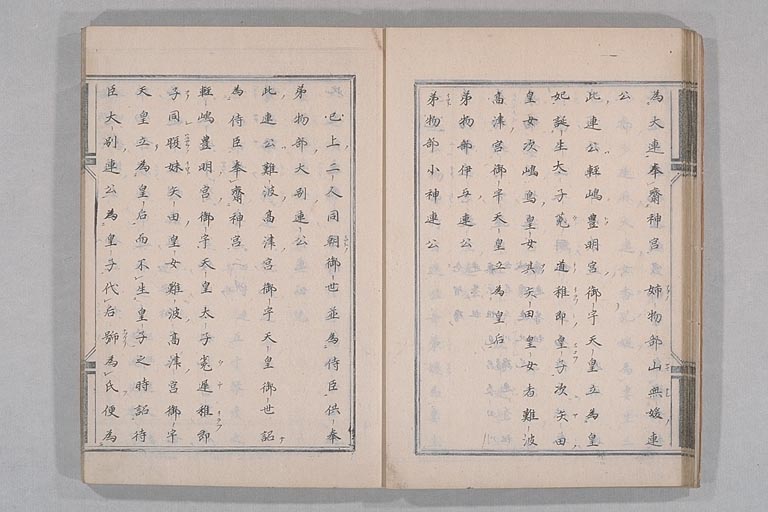 為大連奉齋神宮姉物部山無媛連
公
此連公輕嶋豊明宮御宇天皇立為皇
妃誕生太子菟道稚即皇子次矢田
皇女次嶋鳥皇女其矢田皇女者難波
高津宮御宇天皇立為皇后
弟物部伊与連公
弟物部小神連公
已上二人同朝御世並為侍臣供奉
弟物部大別連公
此連公難波高津宮御宇天皇御世詔
為侍臣奉齋神宮
輕嶋豊明宮御宇天皇太子菟遅稚即
子同腹妹矢田皇女難波高津宮御宇
天皇立為皇后而不生皇子之時詔侍
臣大別連公為皇子代后號為氏便為